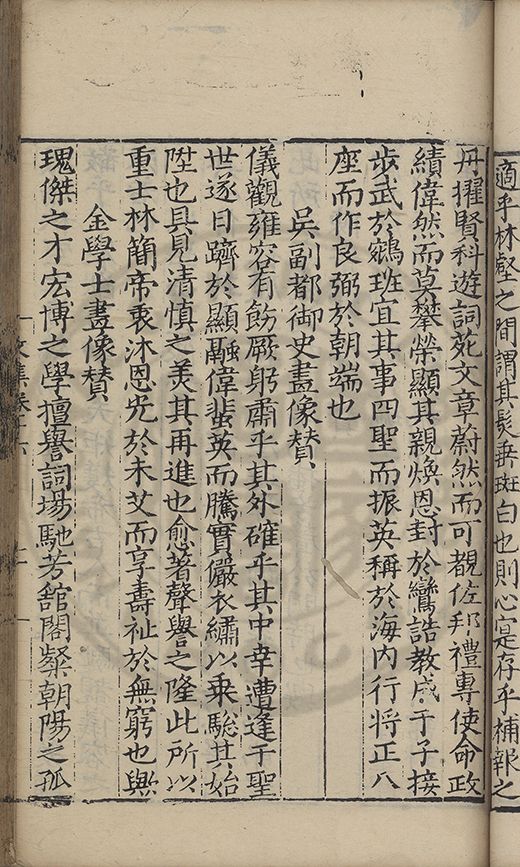 適乎林壑之間謂其髮垂斑白也則心寔存乎補報之
丹擢賢科遊詞苑文章蔚然而可觀佐邦禮專使命政
績偉然而莫攀榮顯其親煥恩封於鸞誥教成于子接
步武於鵷班宜其事四聖而振英稱於海内行將正八
座而作良弼於朝端也
吳副都御史畫像賛
儀觀雍容有飭厥躬肅乎其外確乎其中幸遭逢于聖
世遂日躋於顯融偉蜚英而騰實儼衣繡以乗驄其始
陞也具見清慎之羙其再進也愈著聲譽之隆此所以
重士林簡帝衷沐恩光於未艾而享壽祉於無窮也歟
金學士畫像賛
瑰傑之才宏博之學擅譽詞場馳芳舘閣粲朝陽之孤
文集卷十六